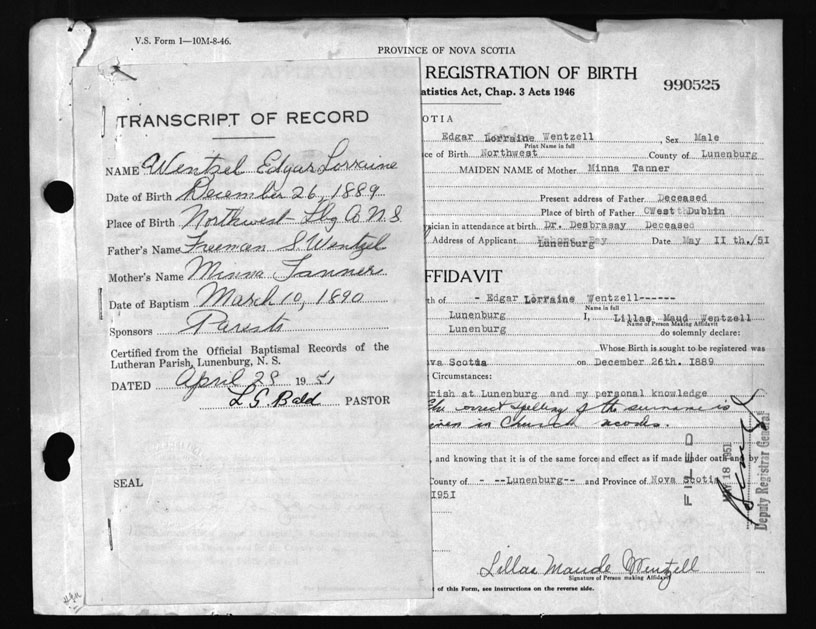 V.S. Form 1—10M-8-46.
PROVINCE OF NOVA SCOTIA
REGISTRATION OF BIRTH
990525
atistics Act, Chap. 3 Acts 1946
TRANSCRIPT OF RECORD
NAME Wentzel Edgar Lorraine
Date of Birth December 26, 1889
Place of Birth Northwest Lbg Co N.S.
Father's Name Freeman S Wentzel
Mother's Name Minna Tanner
Date of Baptism March 10, 1890
Sponsors Parents
Certified from the Official Baptismal Records of the
Lutheran Parish, Lunenburg, N. S.
DATED April 28 1951
L. G. Bald PASTOR
SEAL
OTIA
Edgar Lorraine Wentzell Sex Male
Print Name in full
ce of Birth Northwest County of Lunenburg
MAIDEN NAME of Mother Minna Tanner
Present address of Father Deceased
Place of birth of Father West Dublin
sician in attendance at birth Dr. Desbrasay Deceased
Address of Applicant Lunenburg Date May 11 th./51
FFIDAVIT
th of - Edgar Lorraine Wentzell------
Name in full
Lunenburg I, Lillas Maud Wentzell
Name of Person Making Affidavit
Lunenburg do solemnly declare:
Whose Birth is sought to be registered was
va Scotia on December 26th. 1889
Circumstances:
rish at Lunenburg and my personal knowledge
The correct spelling of the surname is
given in Church records.
, and knowing that it is of the same force and effect as if made under oath and by
County of - --Lunenburg-- and Province of Nova Scotia
1951
FILED
MAY 18 1951
Deputy Registrar General
Lillas Maude Wentzell
Signature of Person making Affidavit
of this Form, see instructions on the reverse side.